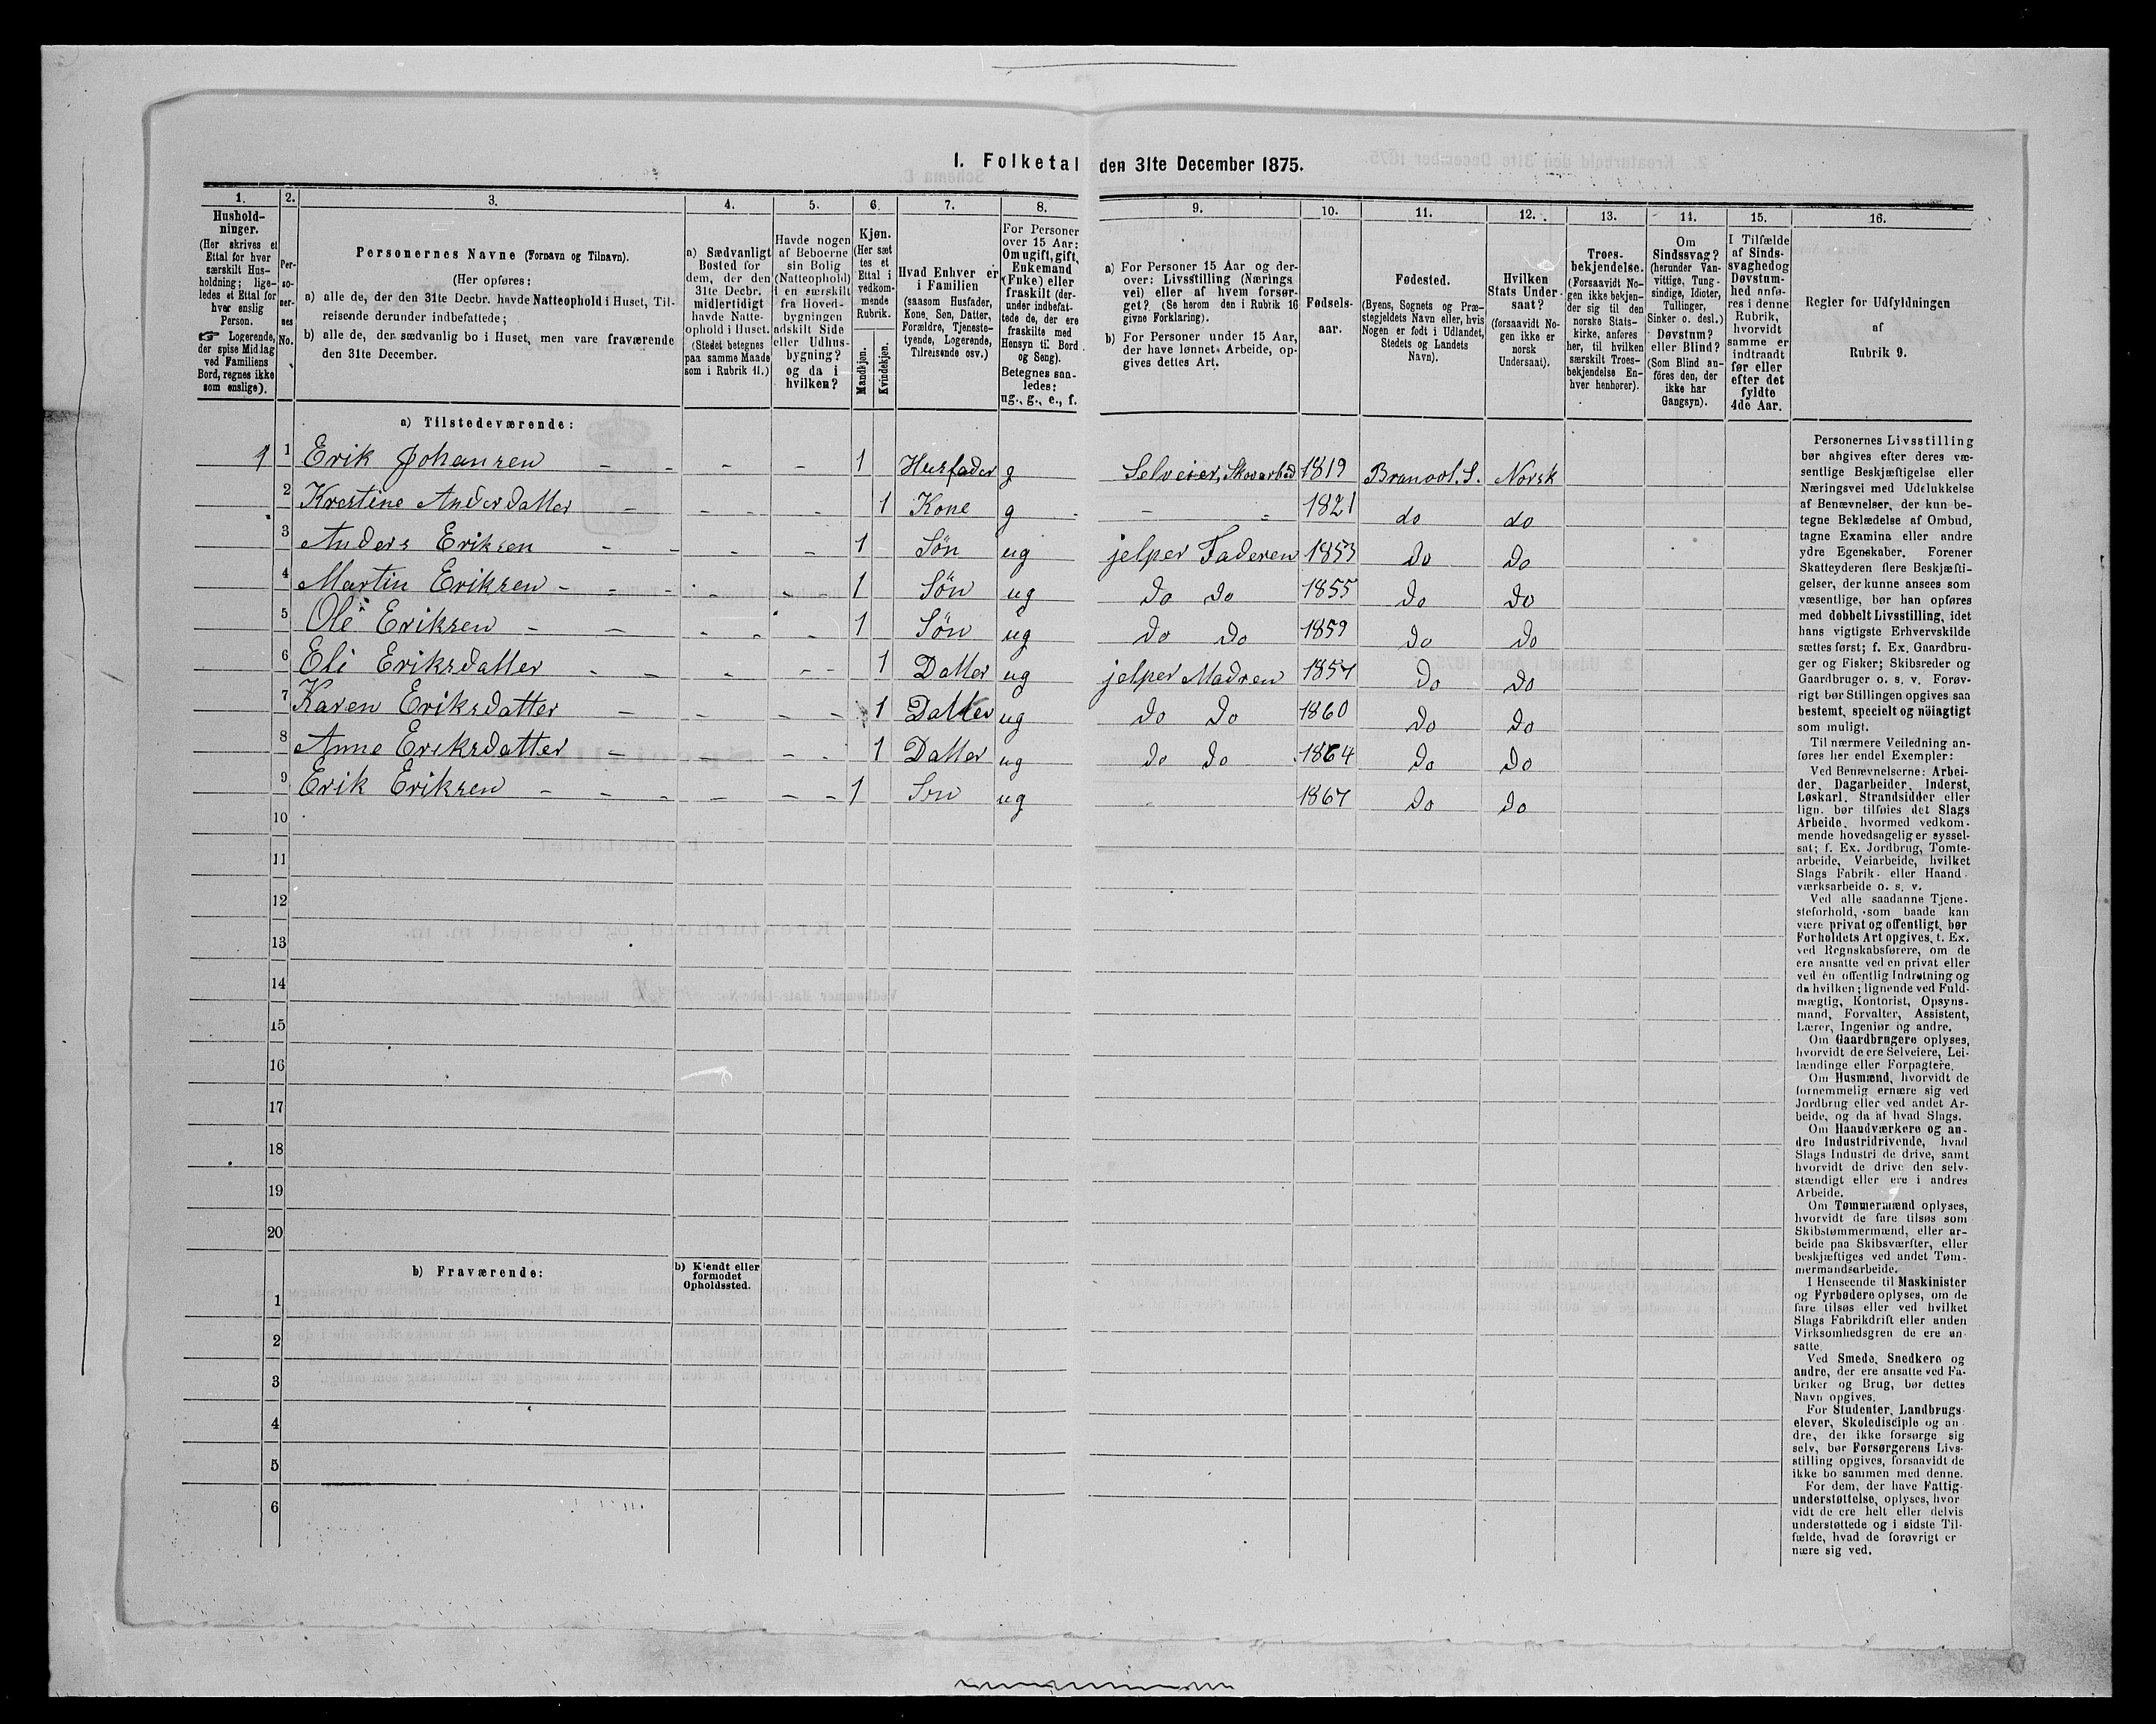 1. Folketal den 31te December 1875.
1. 2. 3. 4. 5. 6. 7. 8. 9. 10. 11. 12. 13. 14. 15. 16.
Hushold-
ninger.
(Her skrives et
Ettal for hver
særskilt Hus-
holdning; lige-
ledes et Ettal for
hver enslig
Person.
☞ Logerende,
der spise Middag
ved Familiens
Bord, regnes ikke
som enslige).
Per-
so-
ner-
nes
No.
Personernes Navne (Fornavn og Tilnavn).
(Her opføres:
a) alle de, der den 31te Decbr. havde Natteophold i Huset, Til-
reisende derunder indbefattede;
b) alle de, der sædvanlig bo i Huset, men vare fraværende
den 31te December.
a) Sædvanligt
Bosted for
dem, der den
31te Decbr.
midlertidigt
havde Natte-
ophold i Huset.
(Stedet betegnes
paa samme Maade
som i Rubrik 11.)
Havde nogen
af Beboerne
sin Bolig
(Natteophold)
i en særskilt
fra Hoved-
bygningen
adskilt Side
eller Udhus-
bygning?
og da i
hvilken?
Kjøn.
(Her sæt
tes et
Ettal i
vedkom-
mende
Rubrik.
Mandkjøn.
Kvindekjøn.
Hvad Enhver er
i Familien
(saasom Husfader,
Kone, Søn, Datter,
Forældre, Tjeneste-
tyende, Logerende,
Tilreisende osv.)
For Personer
over 15 Aar:
Om ugift, gift,
Enkemand
(Enke) eller
fraskilt (der-
under indbefat-
tede de, der ere
fraskilte med
Hensyn til Bord
og Seng).
Betegnes saa-
ledes:
ug., g., e., f.
a) For Personer 15 Aar og der-
over: Livsstilling (Nærings
vei) eller af hvem forsør-
get? (Se herom den i Rubrik 16
givne Forklaring).
b) For Personer under 15 Aar,
der have lønnet Arbeide, op-
gives dettes Art.
Fødsels-
aar.
Fødested.
(Byens, Sognets og Præ-
stegjeldets Navn eller, hvis
Nogen er født i Udlandet,
Stedets og Landets
Navn).
Hvilken
Stats Under-
saat?
(forsaavidt No-
gen ikke er
norsk
Undersaat).
Troes-
bekjendelse.
(Forsaavidt No-
gen ikke bekjen-
der sig til den
norske Stats-
kirke, anføres
her, til hvilken
særskilt Troes-
bekjendelse En-
hver henhører).
Om
Sindssvag?
(herunder Van-
vittige, Tung-
sindige, Idioter,
Tullinger,
Sinker o. desl.)
Døvstum?
eller Blind?
(Som Blind an-
føres den, der
ikke har
Gangsyn).
I Tilfælde
af Sinds-
svaghed og
Døvstum-
hed anfø-
res i denne
Rubrik,
hvorvidt
samme er
indtraadt
før eller
efter det
fyldte
4de Aar.
Regler for Udfyldningen
af
Rubrik 9.
a) Tilstedeværende:
1 1 Erik Johansen - - - - 1 Husfader g Selveier, Skovarbeid 1819 Branvol. S. Norsk
2 Krestine Andersdatter - - - - 1 Kone g - - 1821 do do
3 Anders Eriksen - - - - 1 Søn ug jelper Faderen 1853 do do
4 Martin Eriksen - - - - - 1 Søn ug do do 1855 do do
5 Ole Eriksen - - - - - 1 Søn ug do do 1859 do do
6 Eli Eriksdatter - - - - - 1 Datter ug jelper Madren 1857 do do
7 Karen Eriksdatter - - - - 1 Datter ug do do 1860 do do
8 Anne Eriksdatter - - - - 1 Datter ug do do 1864 do do
9 Erik Eriksen - - - - - - 1 Søn ug - 1867 do do
10
11
12
13
14
15
16
17
18
19
20
b) Fraværende:
b) Kjendt eller
formodet
Opholdssted.
1
2
3
4
5
6
Personernes Livsstilling
bør angives efter deres væ-
sentlige Beskjæftigelse eller
Næringsvei med Udelukkelse
af Benævnelser, der kun be-
tegne Beklædelse af Ombud,
tagne Examina eller andre
ydre Egenskaber. Forener
Skatteyderen flere Beskjæfti-
gelser, der kunne ansees som
væsentlige, bør han opføres
med dobbelt Livsstilling, idet
hans vigtigste Erhvervskilde
sættes først; f. Ex. Gaardbru-
ger og Fisker; Skibsreder og
Gaardbruger o. s. v. Forøv-
rigt bør Stillingen opgives saa
bestemt, specielt og nöiagtigt
som muligt.
Til nærmere Veiledning an-
føres her endel Exempler:
Ved Benævnelserne: Arbei-
der, Dagarbeider, Inderst,
Løskarl, Strandsidder eller
lign. bør tilføies det Slags
Arbeide, hvormed vedkom-
mende hovedsagelig er syssel-
sat; f. Ex. Jordbrug, Tomte-
arbeide, Veiarbeide, hvilket
Slags Fabrik- eller Haand-
værksarbeide o. s. v.
Ved alle saadanne Tjene-
steforhold, som baade kan
være privat og offentligt, bør
Forholdets Art opgives, t. Ex.
ved Regnskabsførere, om de
ere ansatte ved en privat eller
ved en offentlig Indretning og
da hvilken; lignende ved Fuld-
mægtig, Kontorist, Opsyns-
mand, Forvalter, Assistent,
Lærer, Ingeniør og andre.
Om Gaardbrugere oplyses,
hvorvidt de ere Selveiere, Lei-
lændinge eller Forpagtere.
Om Husmænd, hvorvidt de
fornemmelig ernære sig ved
Jordbrug eller ved andet Ar-
beide, og da af hvad Slags.
Om Haandværkere og an-
dre Industridrivende, hvad
Slags Industri de drive, samt
hvorvidt de drive den selv-
stændigt eller ere i andres
Arbeide.
Om Tømmermænd oplyses,
hvorvidt de fare tilsøs som
Skibstømmermænd, eller ar-
beide paa Skibsværfter, eller
beskjæftiges ved andet Tøm-
mermandsarbeide.
I Henseende til Maskinister
og Fyrbødere oplyses, om de
fare tilsøs eller ved hvilket
Slags Fabrikdrift eller anden
Virksomhedsgren de ere an-
satte.
Ved Smede, Snedkere og
andre, der ere ansatte ved Fa-
briker og Brug, bør dettes
Navn opgives.
For Studenter, Landbrugs-
elever, Skoledisciple og an-
dre, der ikke forsørge sig
selv, bør Forsørgerens Livs-
stilling opgives, forsaavidt de
ikke bo sammen med denne.
For dem, der have Fattig-
understøttelse, oplyses, hvor
vidt de ere helt eller delvis
understøttede og i sidste Til-
fælde, hvad de forøvrigt er
nære sig ved.